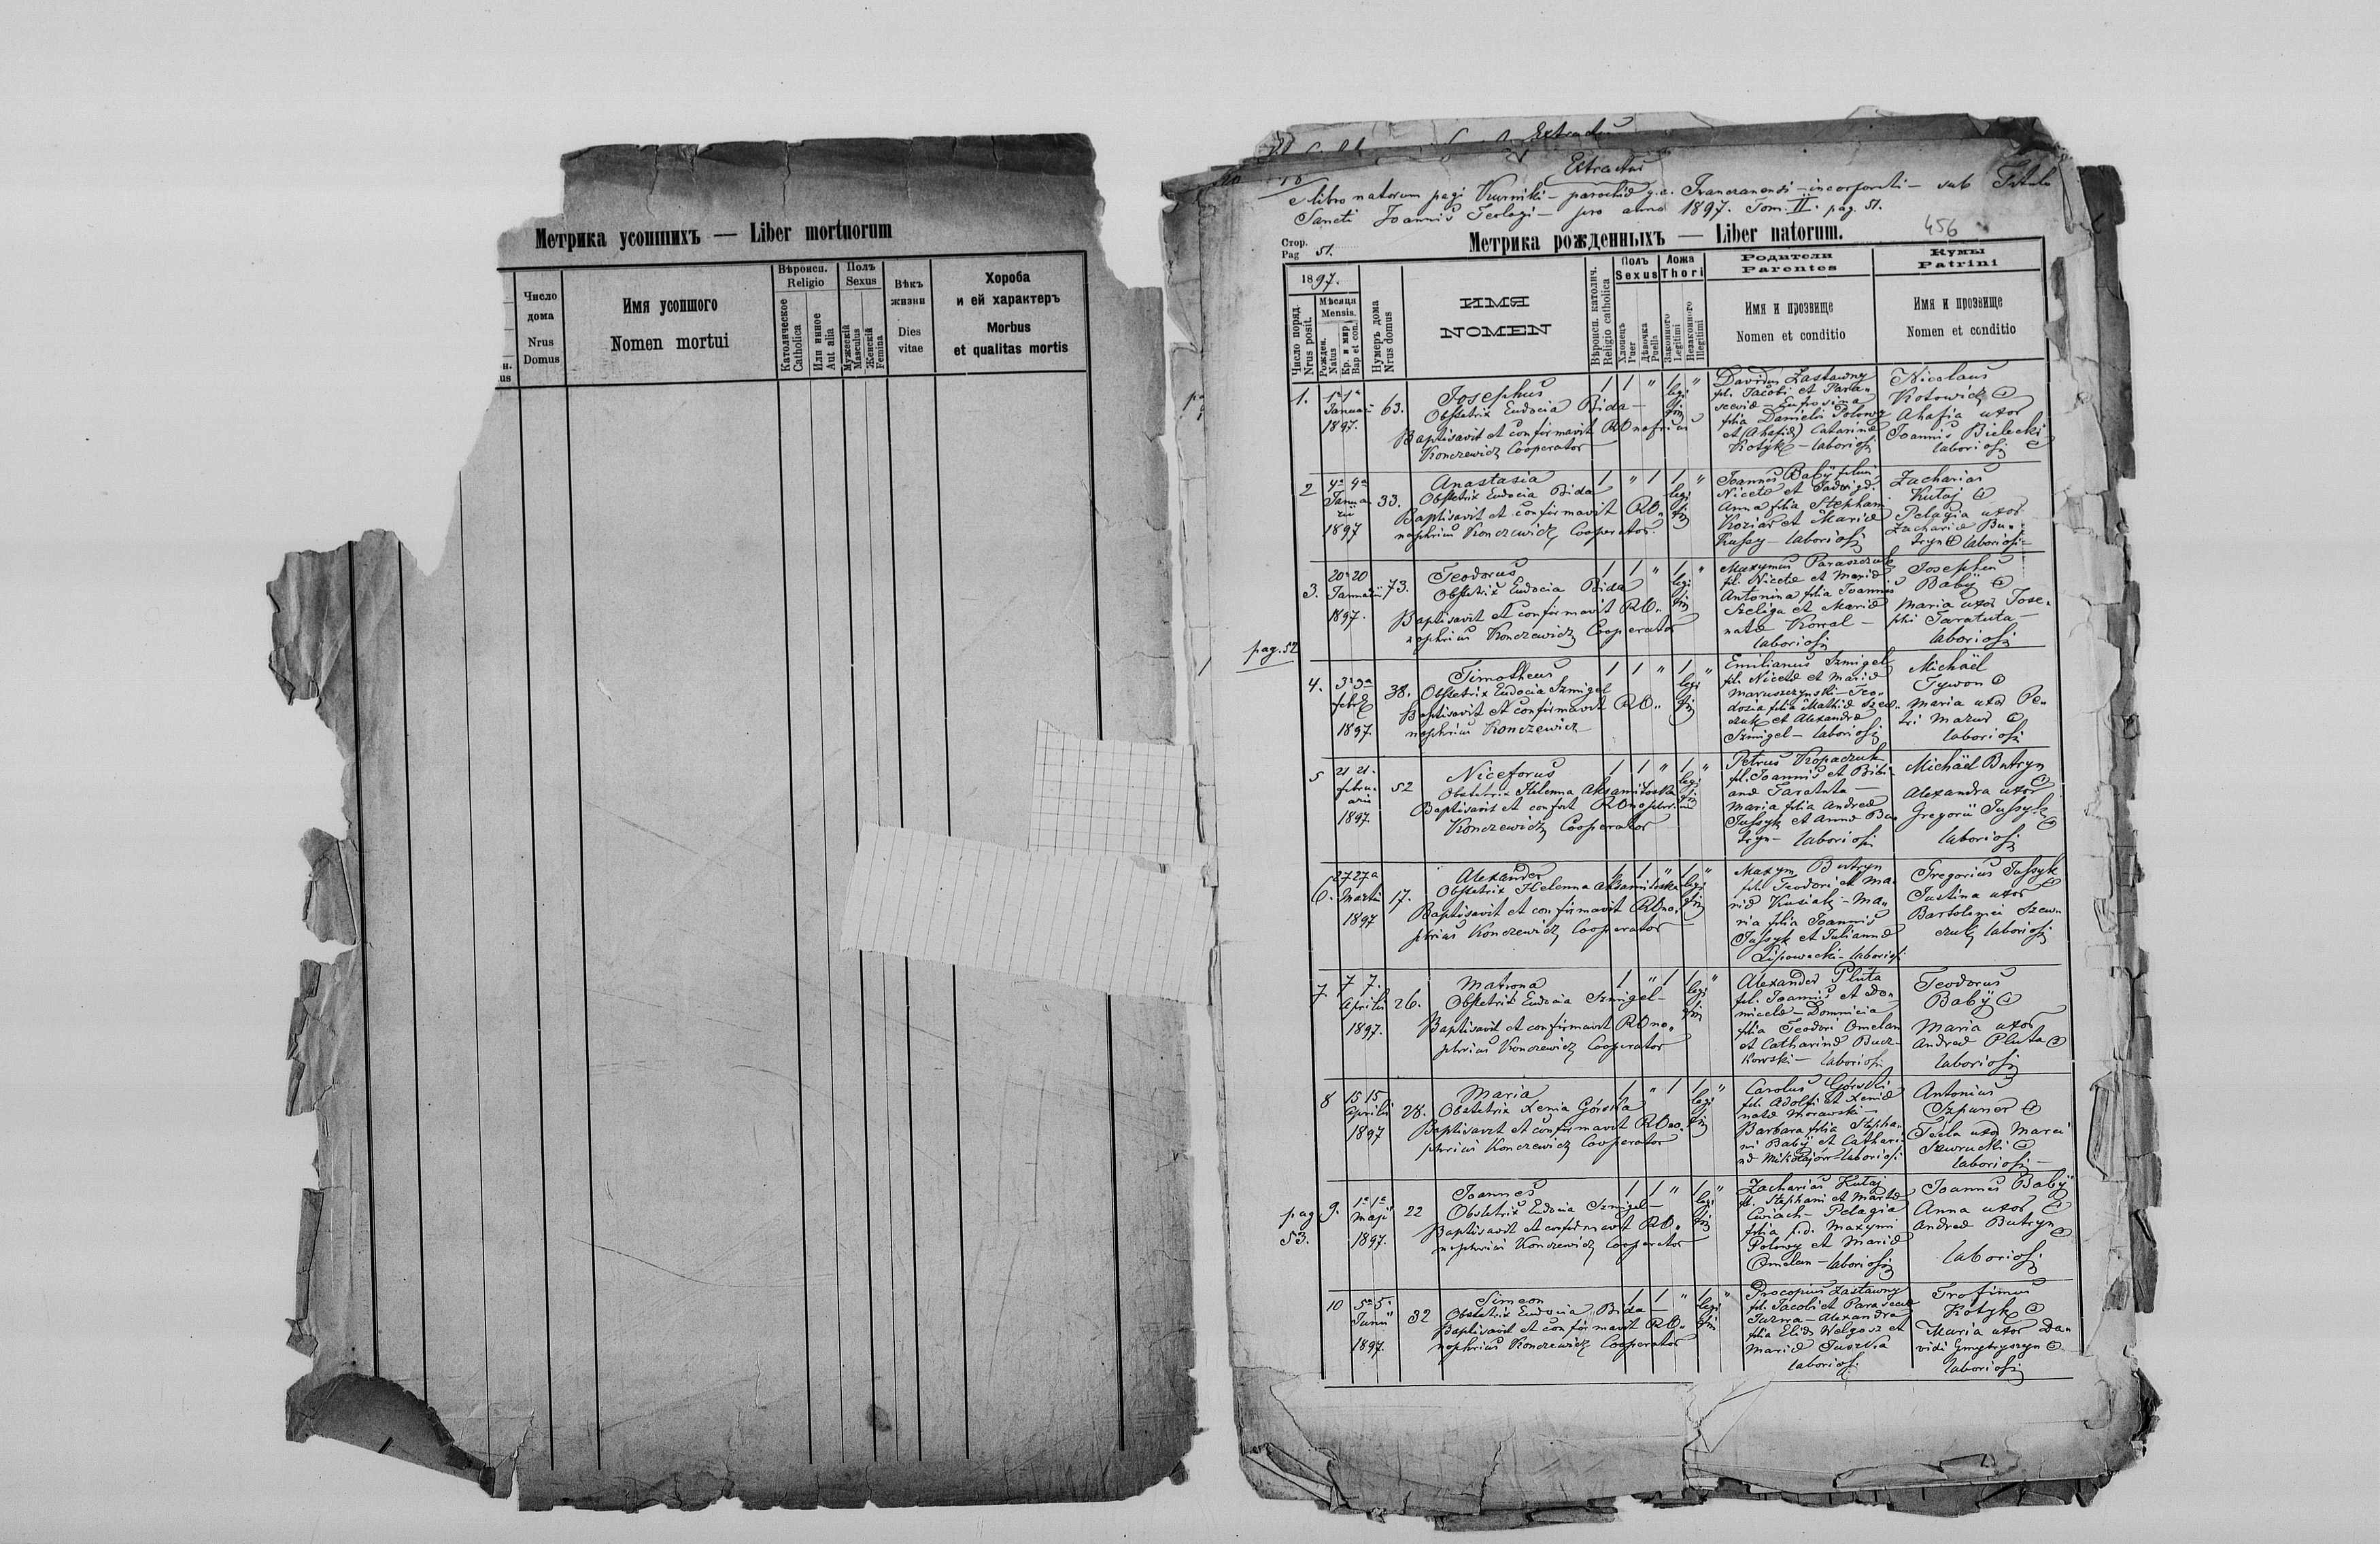 Метрика усопшихъ — Liber mortuorum
Число дома
Nrus Domus
Имя усопшого
Nomen mortui
Вѣроисп.
Religio
Католическое
Catholica
Или инное
Aut alia
Полъ
Sexus
Мужескій
Masculus
Женскій
Femina
Вѣкъ жизни
Dies vitae
Хороба
и ей характеръ
Morbus
et qualitas mortis
Extractus
e libro natorum pagi Kurniki – parochiæ g.c. Ivanczanensi – incorporati – sub Titulo
Sancti Joannis Teologi – pro anno 1897. Tom. II. pag. 51.
456
Стор.
Pag 51.
Метрика рожденныхъ — Liber natorum.
1897.
Число поряд.
Nrus posit.
Мѣсяця
Mensis.
Рожден.
Natus
Кр. и мир.
Bap et con.
Нумеръ дома
Nrus domus
ИМЯ
NOMEN
Вѣроисп. католич.
Religio catholica
Полъ
Sexus
Хлопецъ
Puer
Дѣвочка
Puella
Ложа
Thori
Законного
Legitimi
Незаконного
Illegitimi
Родители
Parentes
Имя и прозвище
Nomen et conditio
Кумы
Patrini
Имя и прозвище
Nomen et conditio
1. 1ª 1ª Januarii 1897. 63.
Josephus
Obstetrix Eudocia Bida –
Baptisavit et confirmavit R Onofrius
Konczewicz Cooperator
1 1 " 1 "
legitim
David Zastawny
fil. Jacobi et Para-
scewiæ – Eufrosina
filia Danielis Polowy
et (Ahafiæ) Catarinæ
Kotyk – laboriosi
Nicolaus
Kotowicz
Ahafia uxor
Joannis Bielecki
laboriosi
2 4ª 4ª Januarii 1897 33.
Anastasia
Obstetrix Eudocia Bida
Baptisavit et confirmavit R O-
nophrius Konczewicz Cooperator.
1 " 1 1 "
legitim
Joannes Babÿ filius
Nicetæ et Jadwigæ.
Anna filia Stephani
Koziar et Mariæ
Kussy – laboriosi
Zacharias
Kutaj
Pelagia uxor
Zachariæ Bu-
tryn laboriosi
3. 20ª 20 Januarii 1897. 73.
Teodorus
Obstetrix Eudocia Bida
Baptisavit et confirmavit R O-
nophrius Konczewicz Cooperator
1 1 " 1 "
legitim
Maxymus Paraszczuk
fil. Nicetæ et Mariæ
Antonina filia Joannis
Szeliga et Mariæ
natæ Kowal –
laboriosi
Josephus
Babÿ
Maria uxor Jose-
phi Taratuta –
laboriosi
pag. 52
4. 3ª 3ª febr. 1897. 38.
Timotheus
Obstetrix Eudocia Szmigel
Baptisavit et confirmavit R O-
nophrius Konczewicz
1 1 " 1 "
legitim
Emilianus Szmigel
fil. Nicetæ et Mariæ
Maruszczynski – Teo-
dozia filia Mathiæ Szew-
czuk et Alexandræ
Szmigel – laboriosi
Michaël
Tywon
Maria uxor Pe-
tri Mazur
laboriosi
5 21 21. februarii 1897. 52
Niceforus
Obstetrix Helenna Aksamitowska
Baptisavit et confirt R Onophrius
Konczewicz Cooperator
1 1 " 1 "
legitim
Petrus Kopaczuk
fil. Joannis et Bibi-
anæ Taratuta –
Maria filia Andreæ
Jussyk et Annæ Bu-
tryn – laboriosi
Michaël Butryn
Alexandra uxor
Gregorii Jussyk
laboriosi
6. 27 27ª Martii 1897 17.
Alexander
Obstetrix Helenna Aksamitoska
Baptisavit et confirmavit R Ono-
phrius Konczewicz Cooperator
1 1 " 1 "
legitim
Maxym Butryn
fil. Teodori et Ma-
riæ Kusiak – Ma-
ria filia Joannis
Jussyk et Juliannæ
Lipowecki – laboriosi
Gregorius Jussyk
Justina uxor
Bartolomei Szew-
czuk laboriosi
7. 7 7. Aprilis 1897. 26.
Matrona
Obstetrix Eudocia Szmigel –
Baptisavit et confirmavit R Ono-
phrius Konczewicz Cooperator
1 " 1 1 "
legitim
Alexander Pluta
fil. Joannis et Do-
micelæ – Domnicia
filia Teodori Omelan
et Catharinæ Bucz-
kowski – laboriosi
Teodorus
Babÿ
Maria uxor
Andreæ Pluta
laboriosi
8 15 15 Aprilis 1897 28.
Maria
Obstetrix Xenia Górska
Baptisavit et confirmavit R Ono-
phrius Konczewicz Cooperator
1 " 1 1 "
legitim
Carolus Górski
fil. Adolfi et Xeniæ
natæ Morawski –
Barbara filia Stepha-
ni Babÿ et Cathari-
næ Mikołajów – laboriosi
Antonius
Szpuner
Tecla uxor Marci
Szwrucki
laboriosi –
pag 53.
9. 1ª 1ª Maji 1897. 22
Joannes
Obstetrix Eudocia Szmigel –
Baptisavit et confirmavit R O-
nophrius Konczewicz Cooperator
1 1 " 1 "
legitim
Zacharias Kutaj
fil. Stephani et Martæ
Cwiach – Pelagia
filia p.d. Maxymi
Polowy et Mariæ
Omelan – laboriosi
Joannes Babÿ
Anna uxor
Andreæ Butryn
laboriosi
10 5ª 5. Junii 1897. 32
Simeon
Obstetrix Eudocia Bida –
Baptisavit et confirmavit R O-
nophrius Konczewicz Cooperator
1 1 " 1 "
legitim
Procopius Zastawny
fil. Jacobi et Parascewiæ
Juzwa – Alexandra
filia Eliæ Welgosz et
Mariæ Juszka
laboriosi
Trofimus
Kotyk
Maria uxor Da-
vidi Gmytryszyn
laboriosi